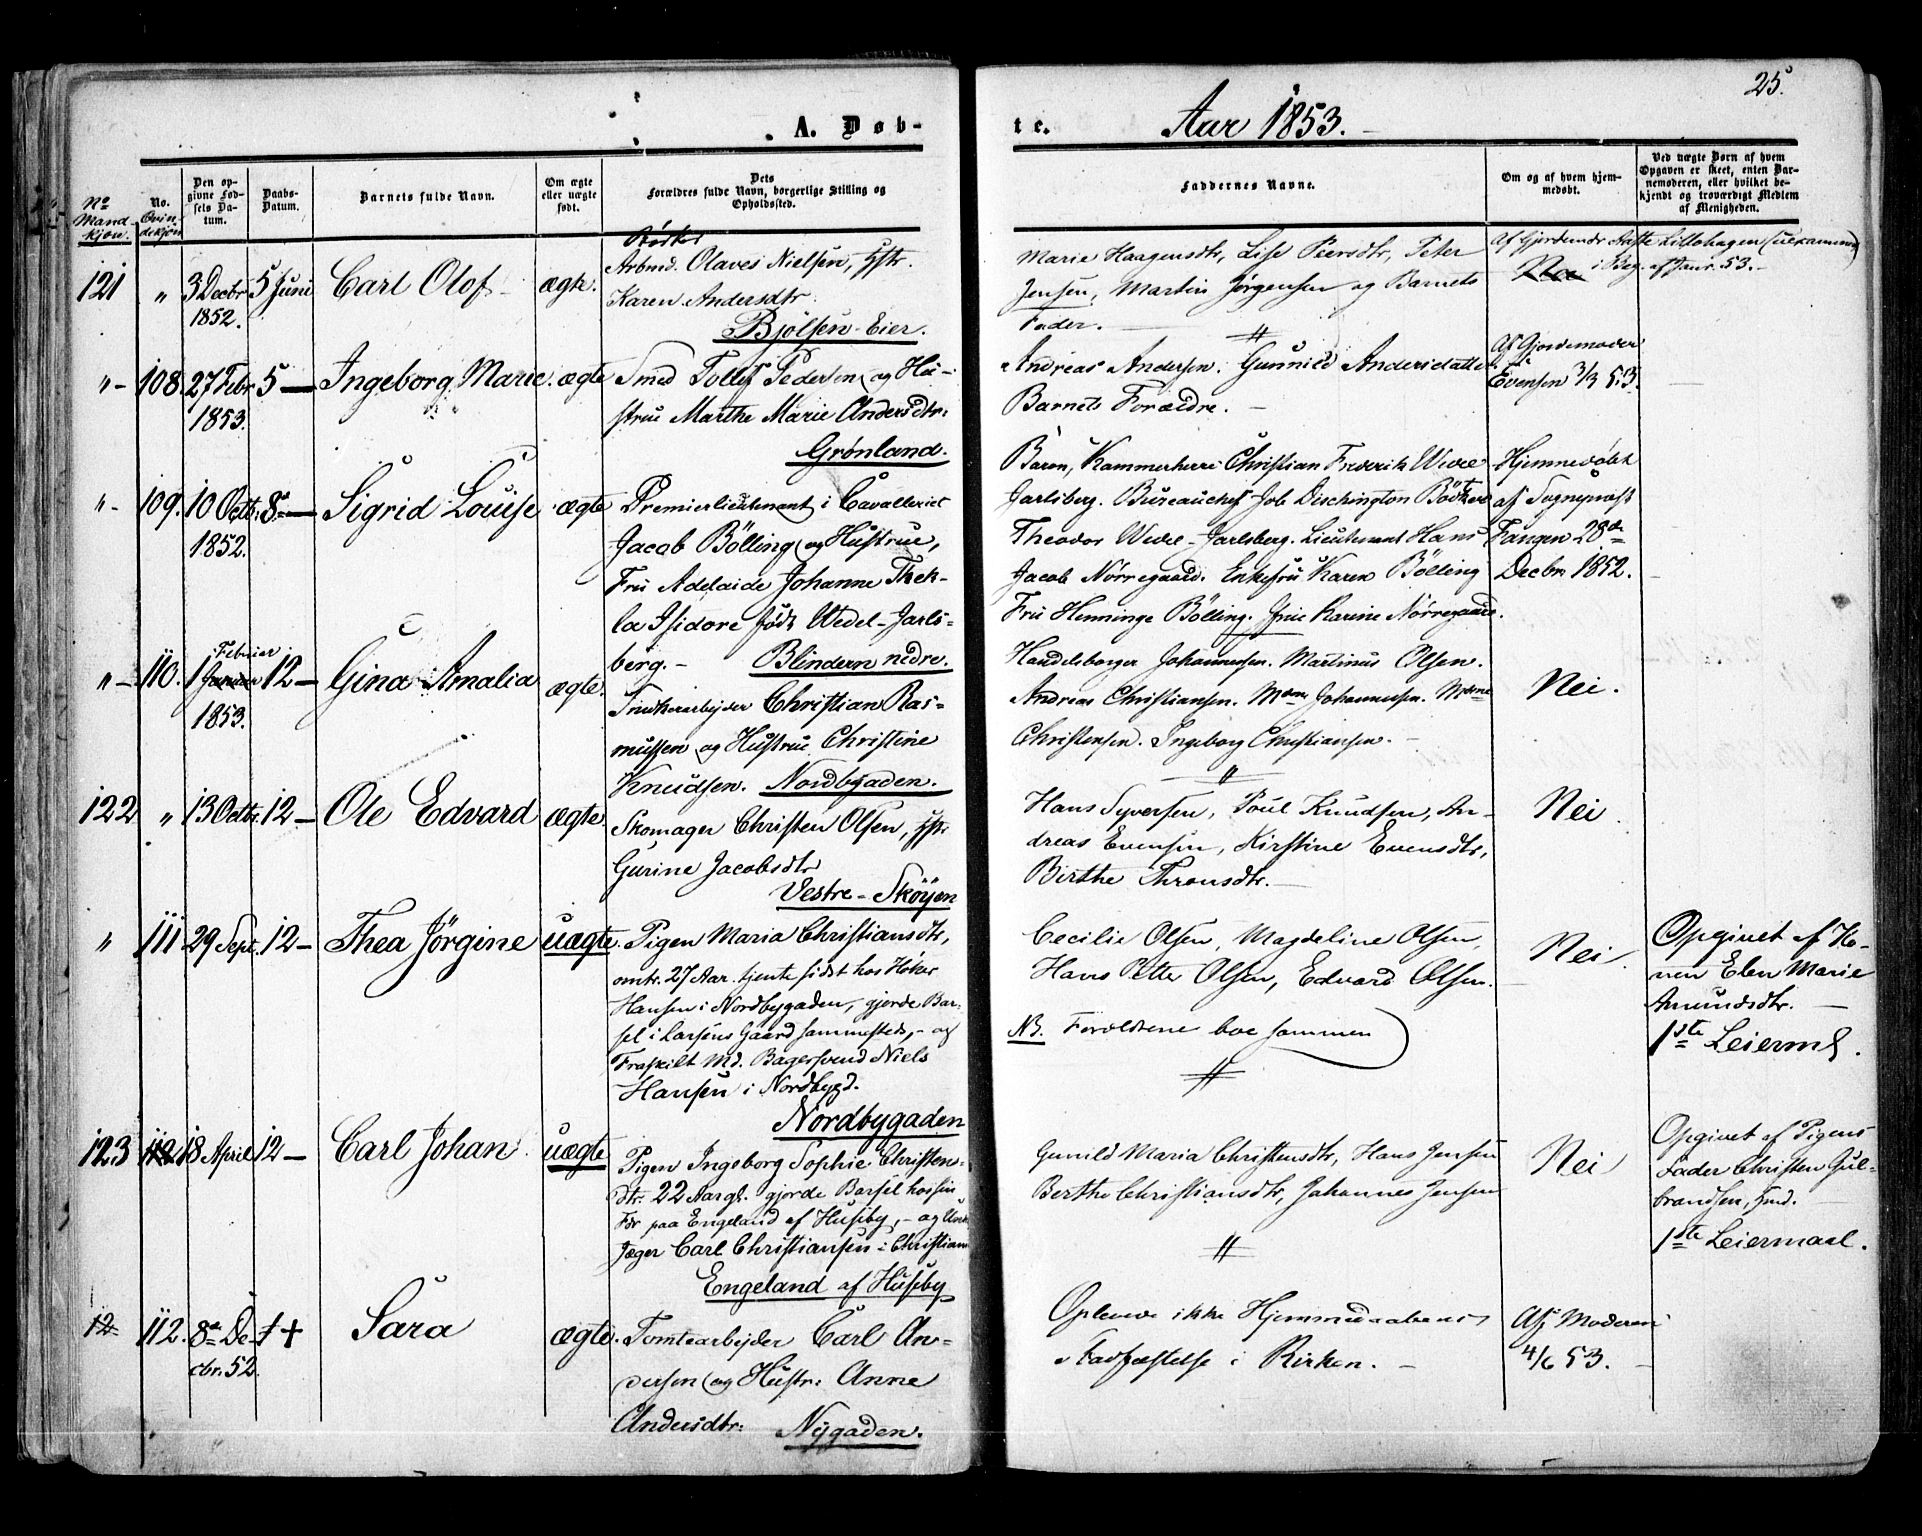 25.
A. Døb-
te.
Aar 1853.
No Mandkjøn.
No. Qvindekjøn
Den opgivne Fødsels Datum.
Daabs-Datum.
Barnets fulde Navn.
Om ægte eller uægte født.
Dets Forældres fulde Navn, borgerlige Stilling og Opholdssted.
Faddernes Navne.
Om og af hvem hjemmedøbt.
Ved uægte Børn af hvem Opgaven er skeet, enten Barnemoderen, eller hvilket bekjendt og troværdigt Medlem af Menigheden.
121 " 3 Decbr 1852. 5 Juni Carl Olof ægte.
Arbmd. Olaves Nielsen, Hstr.
Karen Andersdtr.
Bjølsen-Eier.
Marie Haagensdtr, Lise Peersdtr, Peter
Jensen, Martin Jørgensen og Barnets
Fader.
i Beg. af Janr. 53.
"- 108. 27 Febr 1853. 5 — Ingeborg Marie. ægte
Smed Tollef Pedersen og Hu-
strue Marthe Marie Andersdtr.
Grønland.
Andreas Andersen. Gunnild Andersdatter
Barnets Forældre.
Af Gjordemoder
Evensen 3/3 53.
"- 109. 10 Octbr. 1852. 8de — Sigrid Louise ægte
Premierlieutenant i Cavalleriet
Jacob Bölling og Hustrue,
Fru Adelaide Johanne Thek-
la Isidore født Wedel-Jarls-
berg. - Blindern nedre.
Baron, Kammerherre Christian Frederik Wedel
Jarlsberg. Bureauchef Job Dischington Bödtker
Theodor Wedel-Jarlsberg. Lieutenant Hans
Jacob Nörregaard. Enkefru Karen Bölling
Fru Henninge Bölling. Karine Nörregaard.
Hjemmedøbt
af Sognepræst
Fangen 28de
Decbr. 1852.
"- 110. 1 Februer Januar 1853. 12 — Gina Amalia ægte.
Christian Ras-
mussen og Hustrue Christine
Knudsen. Nordbygaden.
Handelsborger Johannesen. Martinus Olsen.
Andreas Christiansen. Mdme Johannesen. Mdme
Christensen. Ingeborg Christiansen.
Nei.
122 " 13 Octbr. 12 — Ole Edvard ægte
Skomager Christen Olsen, Hstr
Gurine Jacobsdtr
Vestre-Skøyen
Hans Syversen, Poul Knudsen, An-
dreas Evensen, Kirstine Evensdtr,
Birthe Thronsdtr.
Nei
" 111 29 Sept. 12 — Thea Jørgine uægte.
Pigen Maria Christiansdtr,
omtr. 27 Aar. tjente sidst hos Høker
Hansen i Nordbygaden, gjorde Bar-
sel i Larsens Gaard sammesteds, - og
Fraskilt Md. Bagersvend Niels
Hansen i Nordbygd.
Nordbygaden
Cecilie Olsen, Magdeline Olsen,
Hans Petter Olsen, Edvard Olsen.
NB. Forældrene boe sammen
Nei.
Opgivet af Ko-
nen Elen Marie
Amundsdtr.
1ste Leierml.
123 112 18 April 12 — Carl Johan. uægte
Pigen Ingeborg Sophie Christens-
dtr. 22 Aar gl. gjorde Barsel hos sin
Far paa Engeland af Huseby, - og
Jæger Carl Christiansen i Christiania
Engeland af Huseby
Gunild Maria Christensdtr, Hans Jensen
Berthe Christiansdtr, Johannes Jensen
Nei
Opgivet af Pigens
Fader Christen Gul-
brandsen,
1ste Leiermaal.
12 112. 8de De-cbr. 52. † + Sara ægte.
Tomtearbejder Carl An-
dersen og Hustr: Anne
Andersdtr: Nygaden.
Oplevede ikke Hjemmedaabens
Stadfæstelse i Kirken.
Af Moderen
4/6 53.